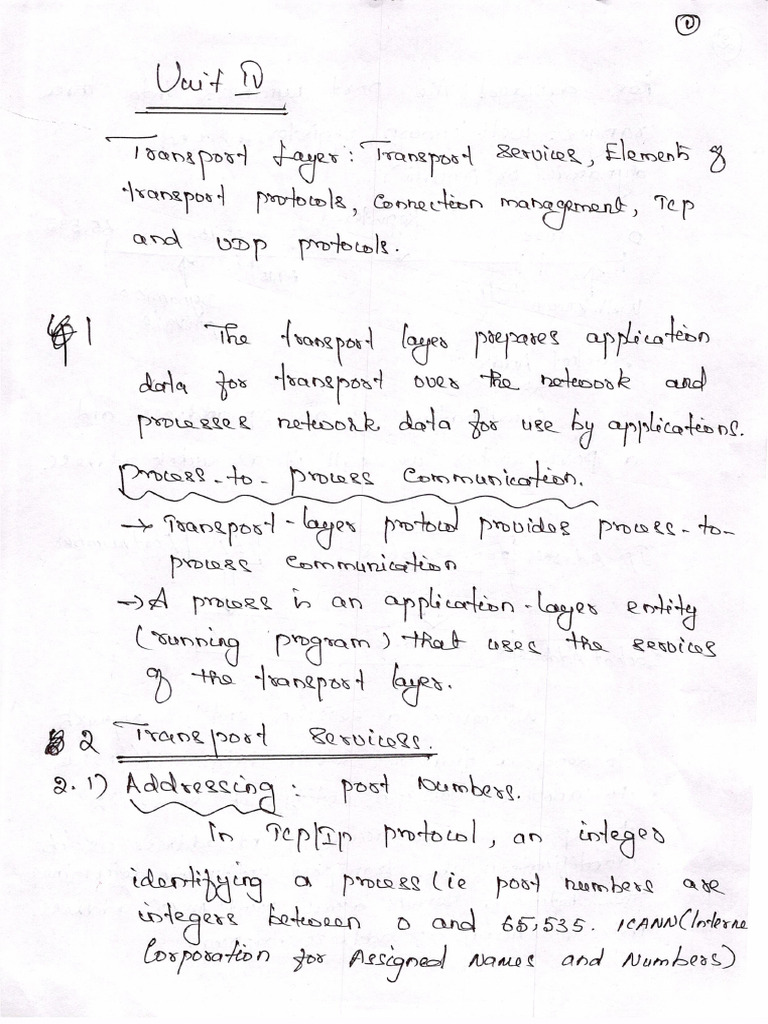 ①
Unit IV
Transport Layer: Transport Services, Elements of
transport protocols, Connection management, TCP
and UDP protocols.
1 The transport layer prepares application
data for transport over the network and
processes network data for use by applications.
Process-to-process communication.
→ Transport-layer protocol provides process-to-
process communication
→ A process is an application-layer entity
(running program) that uses the services
of the transport layer.
2 Transport Servicess.
2.1) Addressing: port Numbers.
In TCP/IP protocol, an integer
identifying a process (ie port numbers are
integers between 0 and 65,535. ICANN (Interne
Corporation for Assigned Names and Numbers)